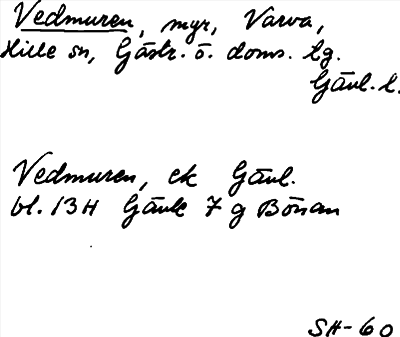 Vedmuren, myr, Varva,
Hille sn, Gästr. ö. doms. tg.
Gävl. l.
Vedmuren, ek Gävl.
bl. 13H Gävle 7 g Bönan
SH-60